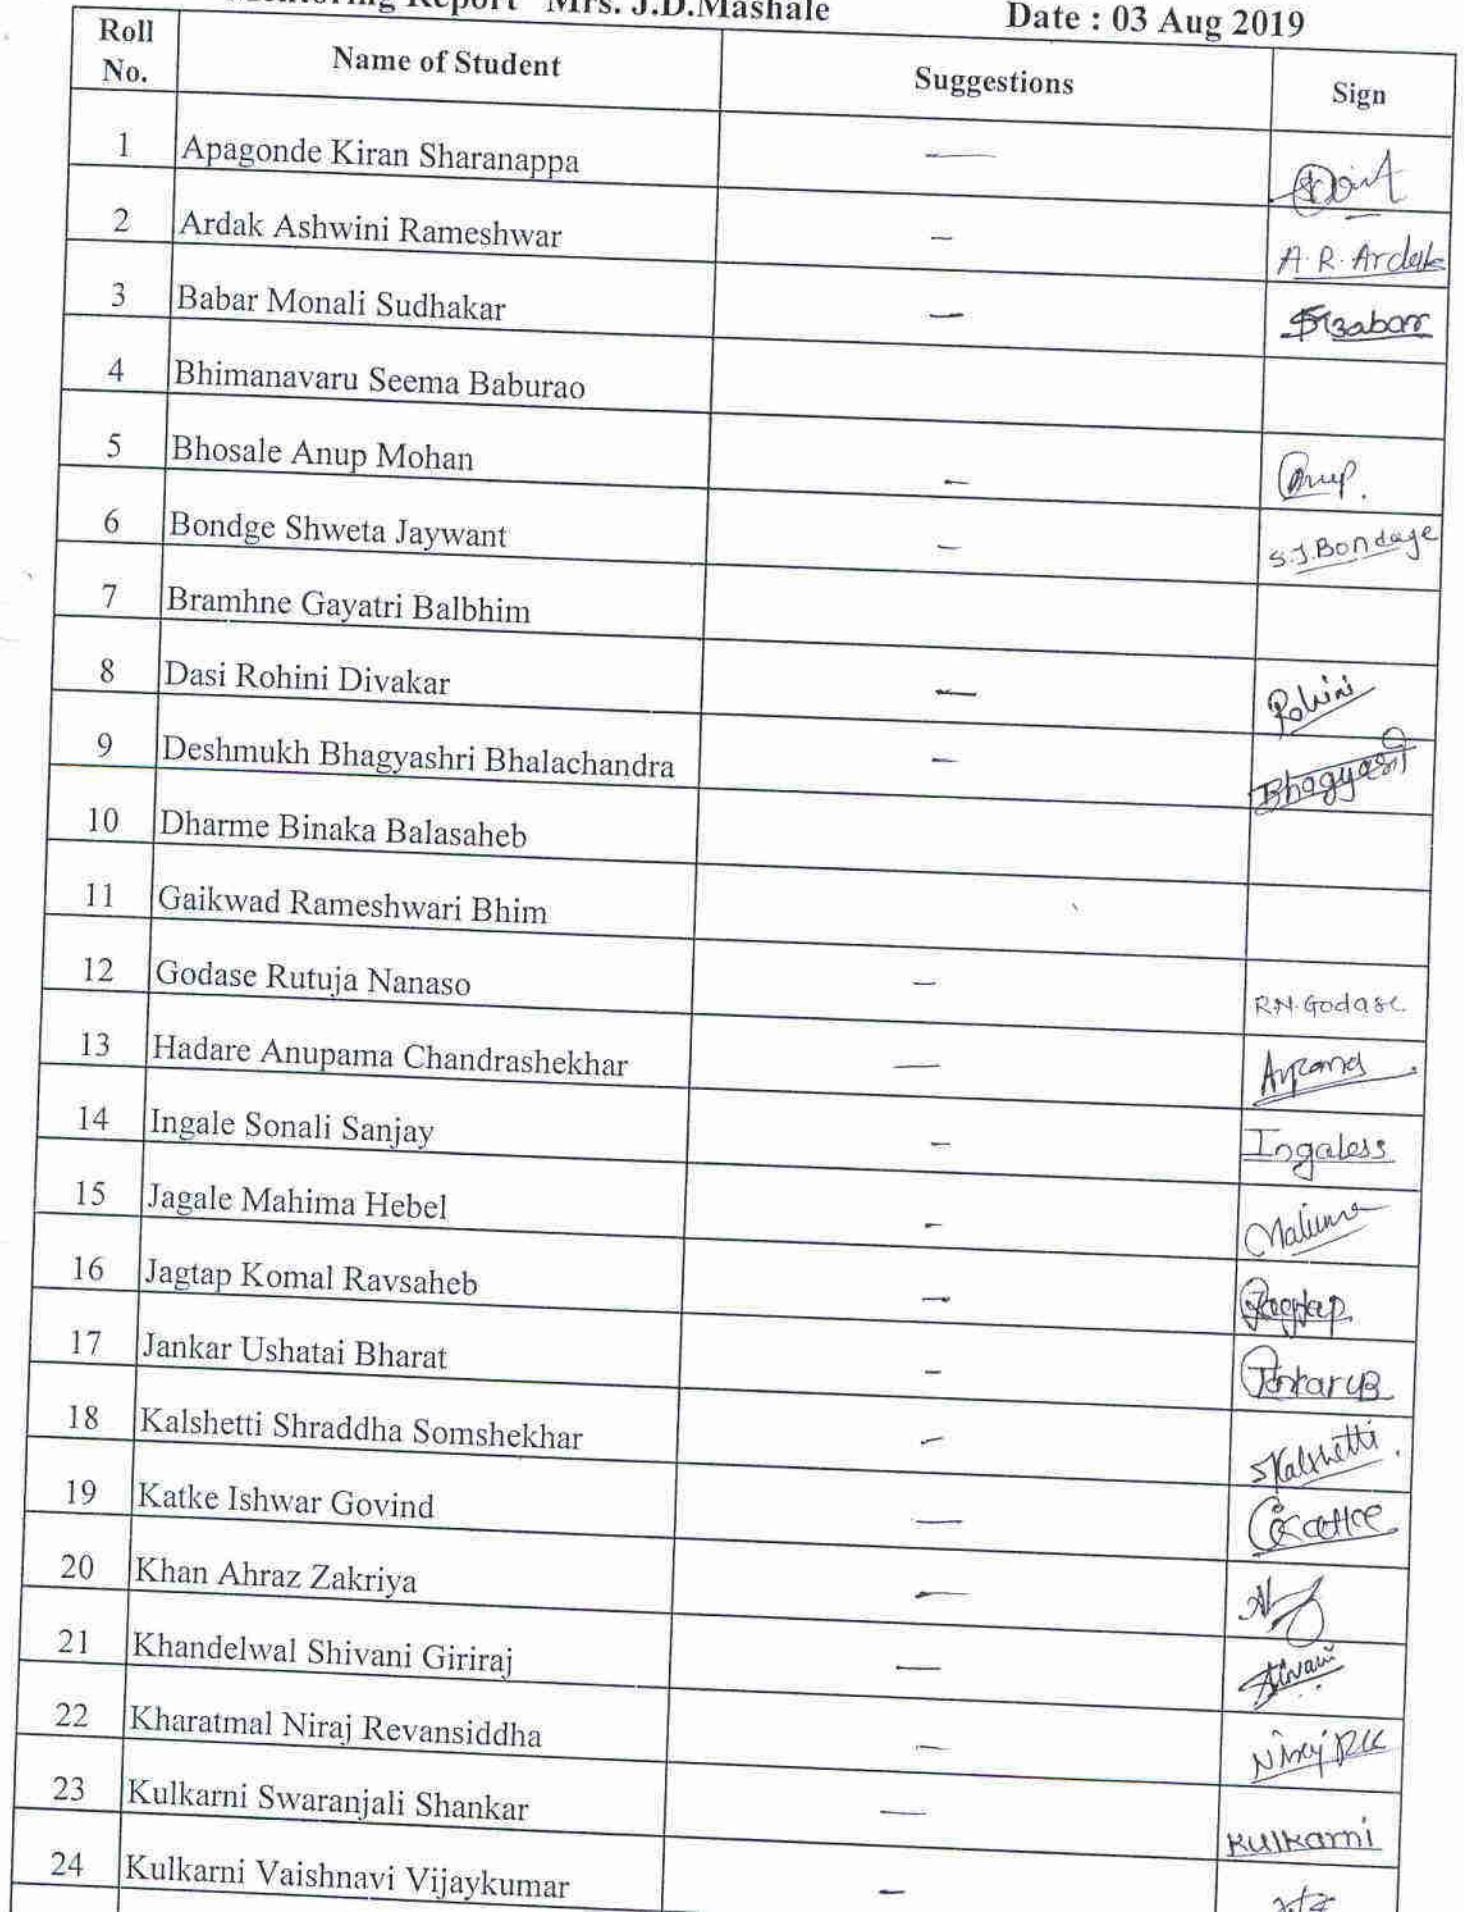 Report Mrs. J.D.Mashale Date : 03 Aug 2019
Roll No. Name of Student Suggestions Sign
1 Apagonde Kiran Sharanappa —
2 Ardak Ashwini Rameshwar — A.R.Ardak
3 Babar Monali Sudhakar — Babar
4 Bhimanavaru Seema Baburao
5 Bhosale Anup Mohan — Anup.
6 Bondge Shweta Jaywant — S.J.Bondage
7 Bramhne Gayatri Balbhim
8 Dasi Rohini Divakar — Rohini
9 Deshmukh Bhagyashri Bhalachandra — Bhagyashri
10 Dharme Binaka Balasaheb
11 Gaikwad Rameshwari Bhim
12 Godase Rutuja Nanaso — R.N.Godase
13 Hadare Anupama Chandrashekhar —
14 Ingale Sonali Sanjay — Ingaless
15 Jagale Mahima Hebel — Mahima
16 Jagtap Komal Ravsaheb — Jagtap
17 Jankar Ushatai Bharat — JankarUB
18 Kalshetti Shraddha Somshekhar — SKalshetti.
19 Katke Ishwar Govind —
20 Khan Ahraz Zakriya —
21 Khandelwal Shivani Giriraj — Shivani
22 Kharatmal Niraj Revansiddha — Niraj RK
23 Kulkarni Swaranjali Shankar — Kulkarni
24 Kulkarni Vaishnavi Vijaykumar —